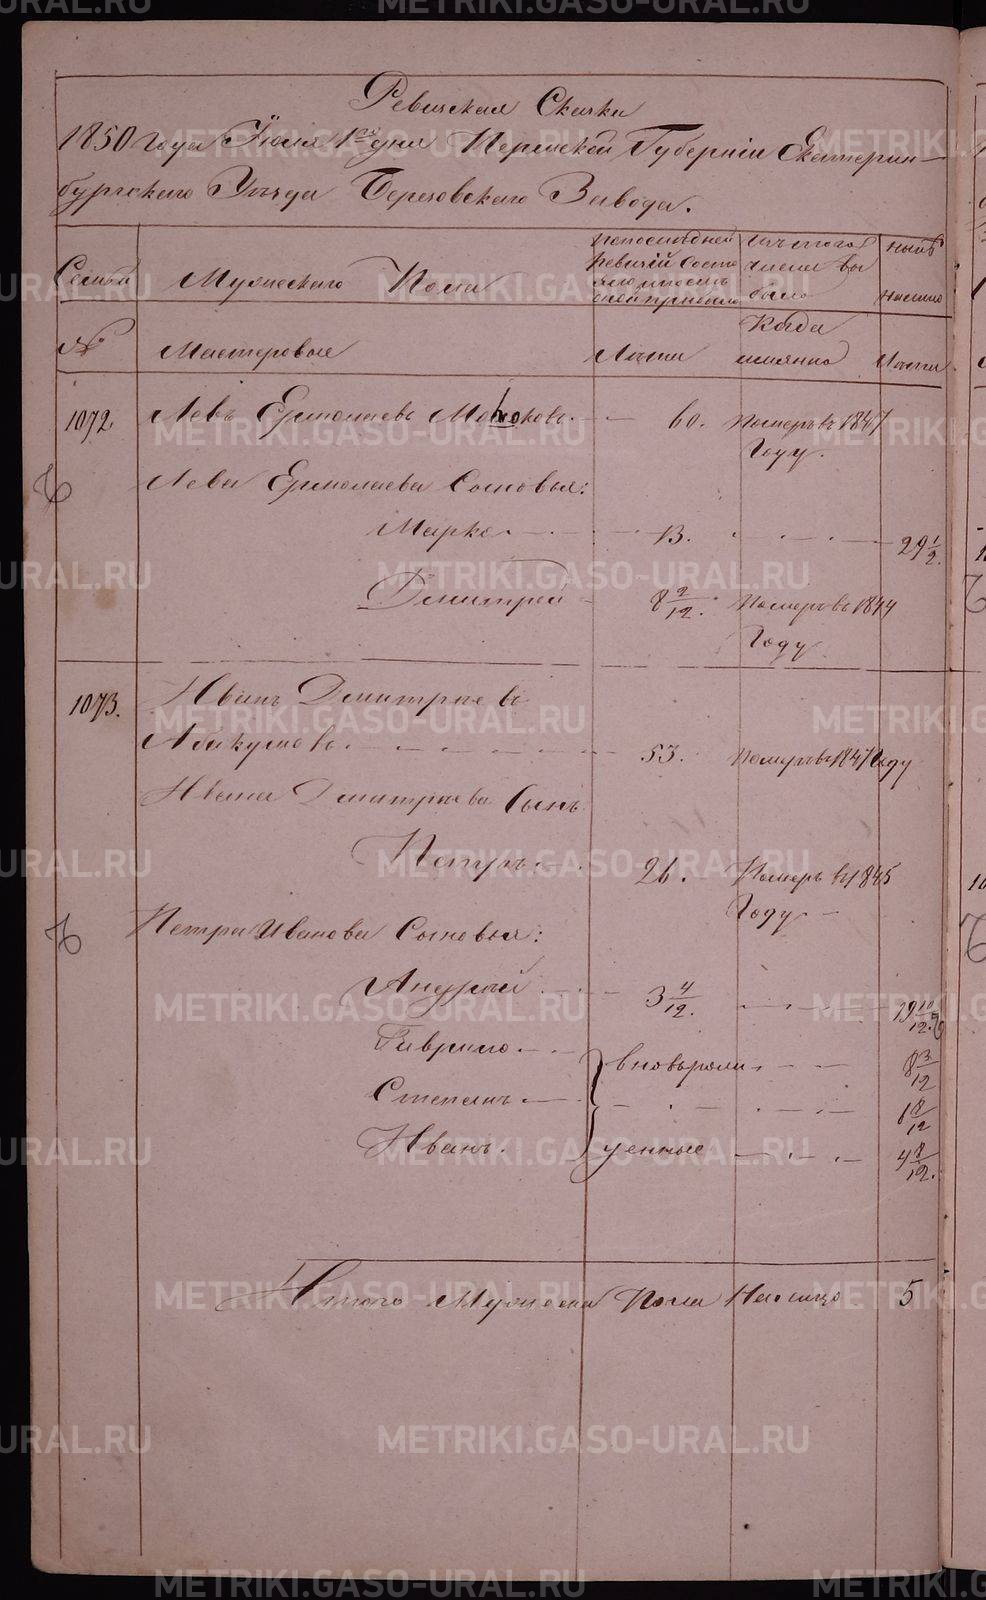 Ревизская Сказка
1850 года Іюля 1го дня Пермской Губерніи Екатерин-
бургскаго Уѣзда Березовскаго Завода.
Семьи
Мужескаго Пола
по последней ревизіи состояло и после оной прибыло
изъ того числа выбыло
нынѣ налицо
№
Мастеровые
Лѣта
Когда имянно
Лѣта
1072. Левъ Ермолаевъ 60. Померъ въ 1847
Году.
Лева Ермолаева Сыновья:
Марко 13. 29 1/2.
Дмитрей 8 9/12. Померъ въ 1844
Году
1073. Иванъ Дмитріевъ
Абакумовъ 53. Померъ въ 1847 Году
Ивана Дмитріева Сынъ
Петръ 26. Померъ въ 1845
Году
Петра Иванова Сыновья:
Андрей 3 4/12. 19 10/12.
Гаврило вновь рож 8 3/12
Степанъ 6 8/12
Иванъ. денные 4 8/12.
Итого Мужеска Пола Налицо 5
METRIKI.GASO-URAL.RU